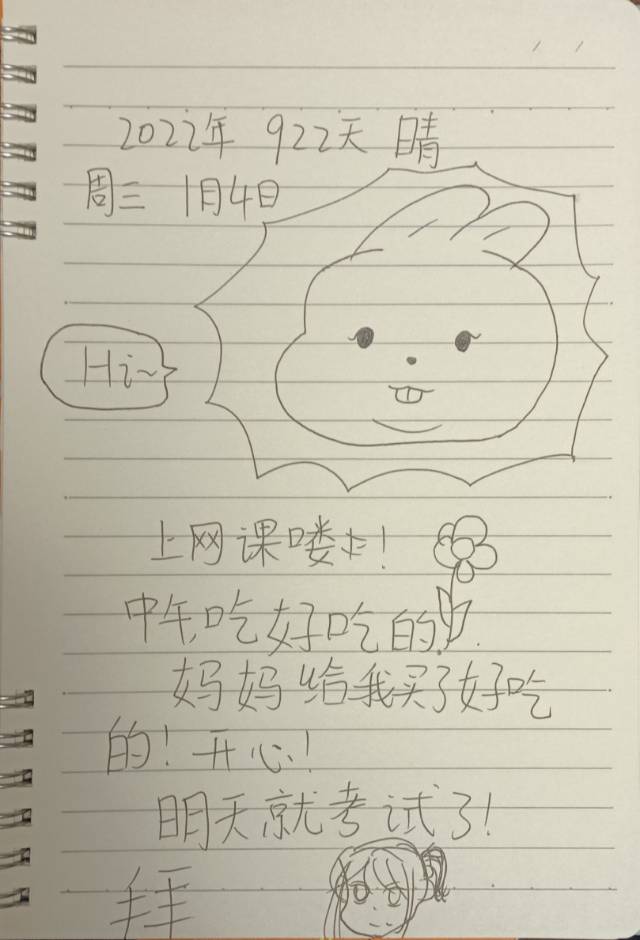 2022年 922天 晴
周三 1月4日
Hi~
上网课喽!
中午,吃好吃的.
妈妈给我买了好吃
的!开心!
明天就考试了!
拜